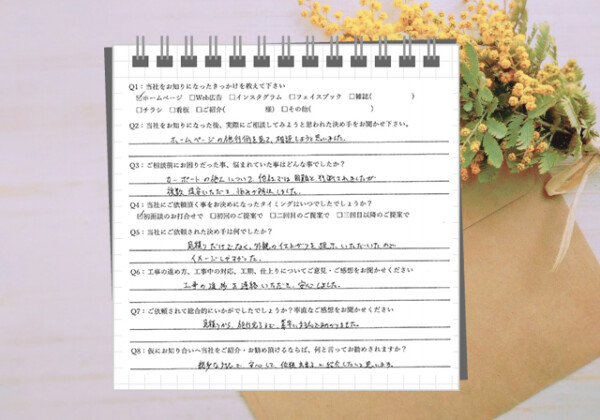 Q1：当社をお知りになったきっかけを教えて下さい
☑ホームページ　□Web広告　□インスタグラム　□フェイスブック　□雑誌(　　　　)
□チラシ　□看板　□ご紹介(　　　　　　様)　□その他(　　　　　　　)
Q2：当社をお知りになった後、実際にご相談してみようと思われた決め手をお聞かせ下さい。
ホームページの施行例を見て、相談しようと思いました。
Q3：ご相談前にお困りだった事、悩まれていた事はどんな事でしたか？
カーポートの施工について、他社では困難と判断されましたが
提案いただき、悩みが解決しました。
Q4：当社にご依頼頂く事をお決めになったタイミングはいつでしたでしょうか？
☑初面談のお打合せで　□初回のご提案で　□二回目のご提案で　□三回目以降のご提案で
Q5：当社にご依頼された決め手は何でしたか？
見積りだけでなく、外観のイメージを提示いただいたので
イメージしやすかった。
Q6：工事の進め方、工事中の対応、工期、仕上りについてご意見・ご感想をお聞かせください
工事の進捗を連絡いただき、安心しました。
Q7：ご依頼されて総合的にいかがでしたでしょうか？率直なご感想をお聞かせください
見積りから、施行完了まで、
Q8：仮にお知り合いへ当社をご紹介・お勧め頂けるならば、何と言ってお勧めされますか？
安心して、依頼出来ると紹介したいと思います。